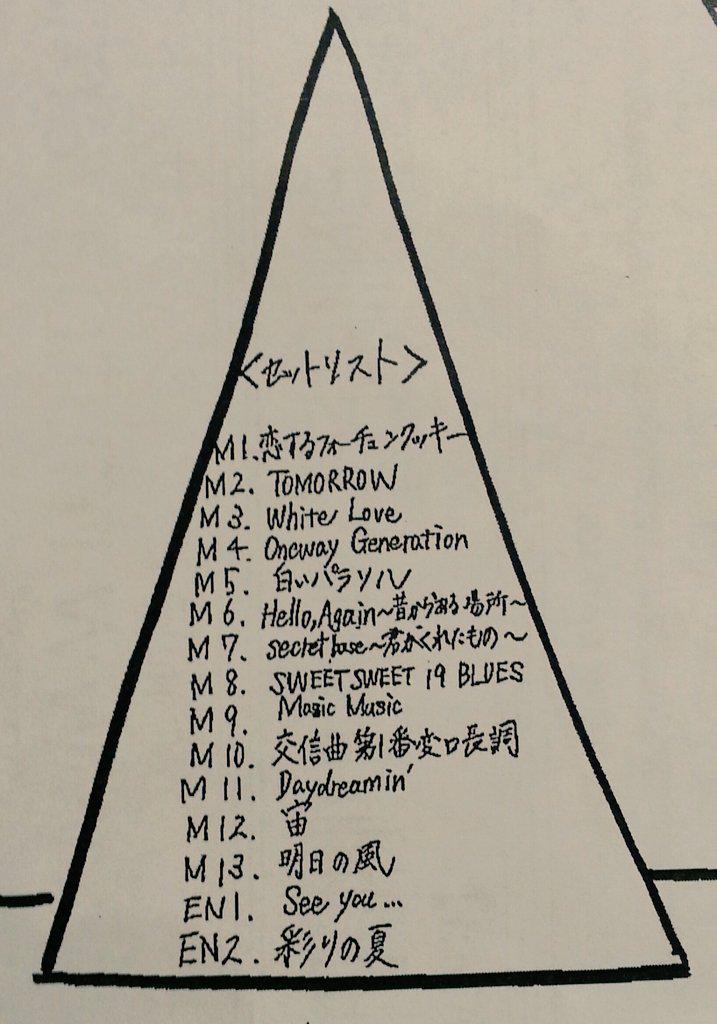 <セットリスト>
M1. 恋するフォーチュンクッキー
M2. TOMORROW
M3. White Love
M4. Oneway Generation
M5. 白いパラソル
M6. Hello, Again~昔からある場所~
M7. secret base~君がくれたもの~
M8. SWEET SWEET 19 BLUES
M9. Magic Music
M10. 交信曲第1番変ロ長調
M11. Daydreamin'
M12. 宙
M13. 明日の風
EN1. See you...
EN2. 彩りの夏